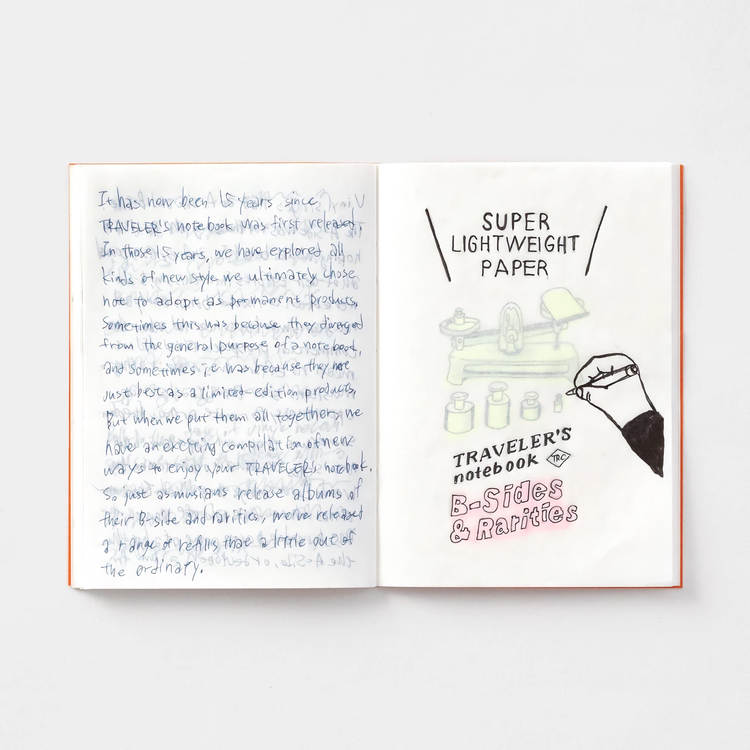 It has now been 15 years since
TRAVELER'S notebook was first released,
In those 15 years, we have explored all
kinds of new style we ultimately chose
not to adopt as permanent products,
Sometimes this was because they diverged
from the general purpose of a notebook,
and sometimes it was because they were
just best as a limited-edition products,
But when we put them all together, we
have an exciting compilation of new
ways to enjoy your TRAVELER's notebook.
So just as musians release albums of
their B-side and rarities, we've released
a range of refills that a little out of
the ordinary.
SUPER
LIGHTWEIGHT
PAPER
TRAVELER'S
notebook TRC
B-Sides
& Rarities